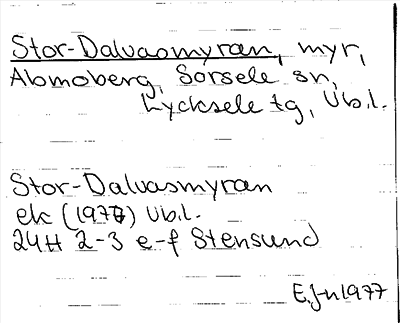 Stor-Dalvasmyran, myr,
Abmoberg, Sorsele sn,
Lycksele tg, Vb.l.
Stor-Dalvasmyran
ek (1977) Vb.l.
24H 2-3 e-f Stensund
E.J-n 1977